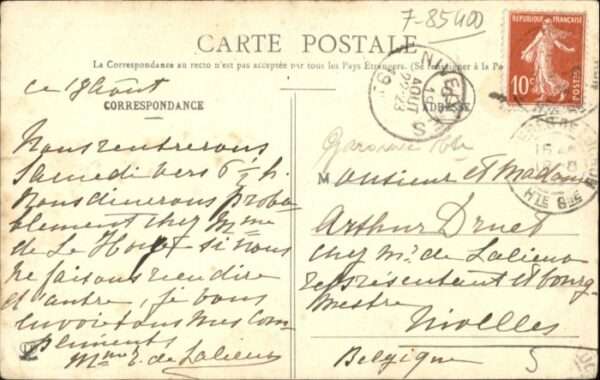 7-85400
CARTE POSTALE
La Correspondance au recto n'est pas acceptée par tous les Pays Étrangers. (Se renseigner à la Po
RÉPUBLIQUE FRANÇAISE
10c
POSTES
ce 18 Août
CORRESPONDANCE
ADRESSE
NIVELLES
19 AOUT
22-23
Hte Gne
Nous rentrerons
Samedi vers 6 ½ h.
Nous dinerons proba-
blement chez Mme
de Le Hoye si nous
ne faisons rien dire
d'autre, je vous
envoie tous mes com-
pliments
Mme E. de Lalieux
Garonne Hte
Monsieur et Madame
Arthur Druet
chez Mr. de Lalieux
représentant et bourg-
mestre
Nivelles
Belgique
5